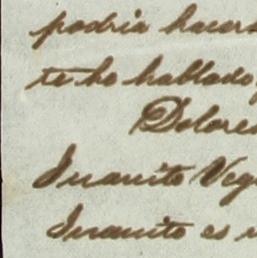 podria hacers
te he hablado,
Dolores
Juanito Veg
Juanito es